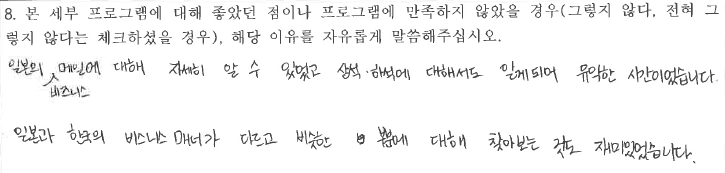 8. 본 세부 프로그램에 대해 좋았던 점이나 프로그램에 만족하지 않았을 경우(그렇지 않다, 전혀 그
렇지 않다는 체크하셨을 경우), 해당 이유를 자유롭게 말씀해주십시오.
일본의 비즈니스 메일에 대해 자세히 알 수 있었고 상석·하석에 대해서도 알게되어 유익한 시간이었습니다.
일본과 한국의 비즈니스 매너가 다르고 비슷한 대해 찾아보는 것도 재미있었습니다.